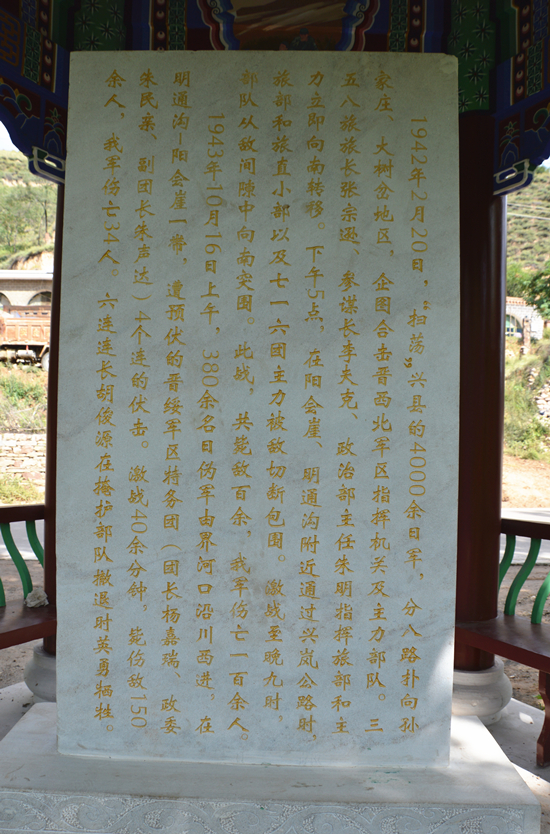 1942年2月20日，“扫荡”兴县的4000余日军，分八路扑向孙
家庄、大树岔地区，企图合击晋西北军区指挥机关及主力部队。三
五八旅旅长张宗逊、参谋长李夫克、政治部主任朱明指挥旅部和主
力立即向南转移。下午5点，在阳会崖、明通沟附近通过兴岚公路时，
旅部和旅直小部以及七一六团主力被敌切断包围。激战至晚九时，
部队从敌间隙中向南突围。此战，共毙敌百余，我军伤亡一百余人。
1943年10月16日上午，380余名日伪军由界河口沿川西进，在
明通沟-阳会崖一带，遭预伏的晋绥军区特务团（团长杨嘉瑞、政委
朱民亲、副团长朱声达）4个连的伏击。激战40余分钟，毙伤敌150
余人，我军伤亡34人。六连连长胡俊源在掩护部队撤退时英勇牺牲。